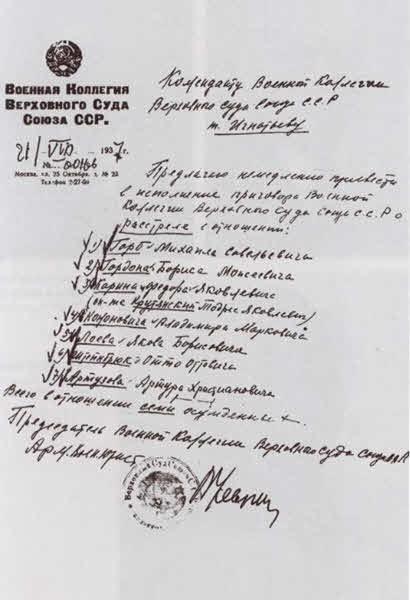 Военная Коллегия
Верховного Суда
Союза ССР.
21/VIII 1937 г.
№ 00166
Москва, ул. 25 Октября, д. № 23
Телефон 2-27-60
Коменданту Военной Коллегии
Верховного суда Союза С.С.Р
т. Игнатьеву
Предлагаю немедленно привести
в исполнение приговора Военной
Коллегии Верховного Суда Союза С.С.Р о
расстреле в отношении:
1) Горб Михаила Савельевича
2) Гордона Бориса Моисеевича
3) Карина Федора Яковлевича
(он-же Крутянский Тодрес Яковлевич)
4) Кононовича Владимира Марковича
5) Лоева Якова Борисовича
6) Штейнбрюк Отто Оттовича
7) Артузова Артура Христиановича
Всего в отношении семи осужденных.
Председатель Военной Коллегии Верховного суда Союза ССР
Армвоенюрист